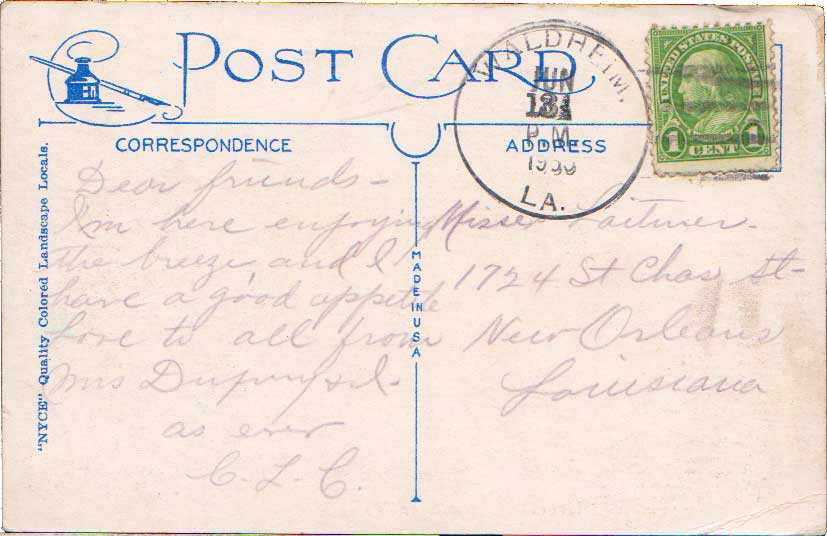 POST CARD
CORRESPONDENCE
ADDRESS
WALDHEIM,
JUN
P.M.
LA.
UNITED STATES POSTAGE
1 CENT 1
"NYCE" Quality Colored Landscape Locals.
MADE IN USA
Dear friends-
I'm here enjoying
the breeze, and I
have a good appetite
Love to all from
Mrs
as ever
C.L.C.
Misses
1724 St Chas St-
New Orleans
Louisiana